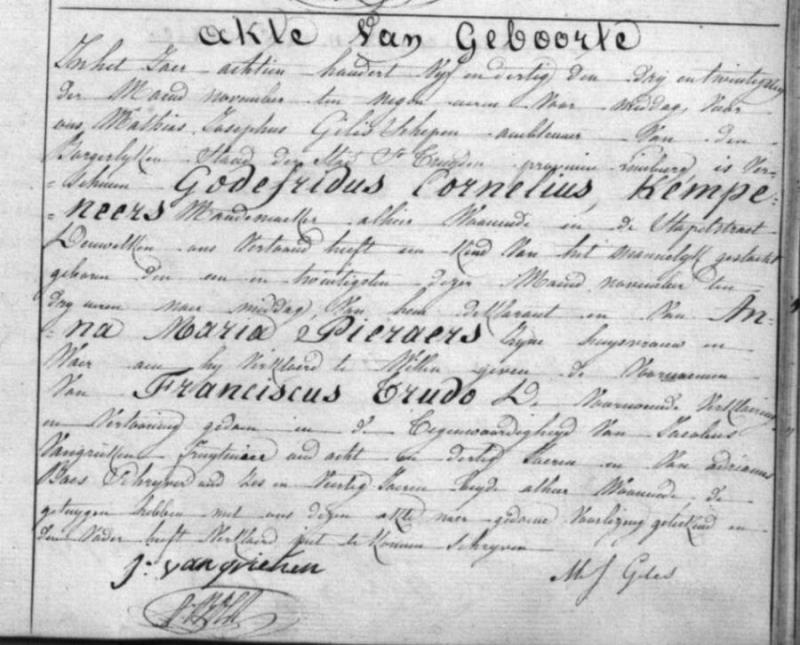 akte Van Geboorte
In het Jaer achtien hondert Vyf en dertig den dry en twintigsten
der Maend november ten negen uren Voor middag, Voor
ons Mathias Josephus Gilis Schepen ambtenaer Van den
Borgerlyken Stand der Stad St Truyden provincie Limburg, is Ver-
-schenen Godefridus Cornelius Kempe-
-neers Mandemaeker alhier Woonende in de Stapelstraet
Dewelken ons Vertoond heeft een Kind Van het mannelyk geslacht
geboren den een en twintigsten dezer Maend november ten
dry uren naer middag, Van hem declarant en Van An-
-na Maria Pieraers Zyne huysvrouw en
Waer aen hy Verklaerd te Willen geven de Voornaemen
Van Franciscus Trudo D. Voornoemde Verklaering
en Vertooning gedaen in de Tegenwoordigheyd Van Jacobus
Vangrieken Fruytenier oud acht en dertig Jaeren en Van adrianus
Baes Schryver oud Zes en Veertig Jaeren beyde alhier Woonende, de
getuygen hebben met ons dezen akte naer gedaene Voorlezing geteekend en
den Vader heeft Verklaerd niet te Konnen Schryven
J. vangrieken
MJ Gilis